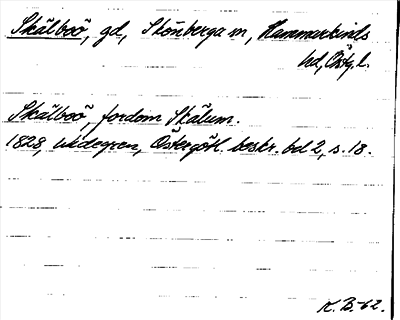 Skälboö, gd, Skönberga sn, Hammarkinds
hd, Östg.l.
Skälboö, fordom Skälum.
1828, Widegren, Östergötl. beskr. bd 2, s. 18.
K. B-62.